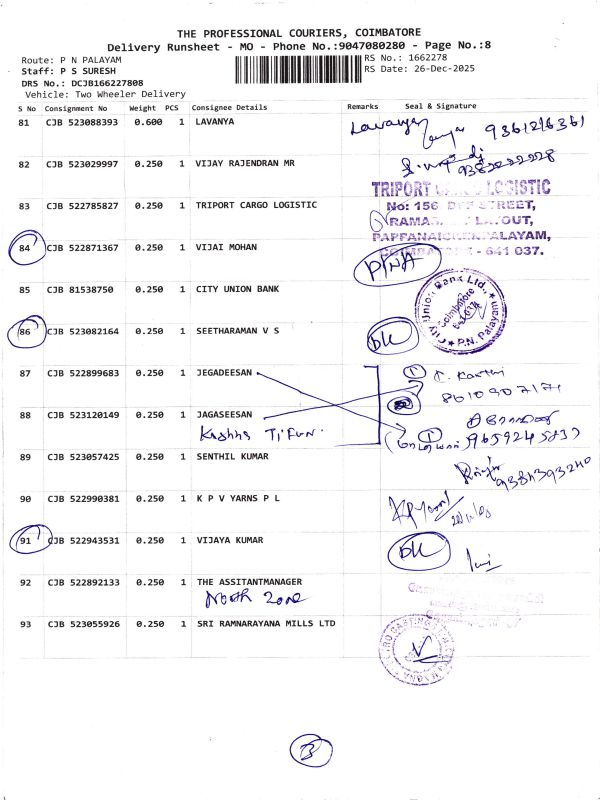 THE PROFESSIONAL COURIERS, COIMBATORE
Delivery Runsheet - MO - Phone No.:9047080280 - Page No.:8
Route: P N PALAYAM
RS No.: 1662278
Staff: P S SURESH
RS Date: 26-Dec-2025
DRS No.: DCJB166227808
Vehicle: Two Wheeler Delivery
S No Consignment No Weight PCS Consignee Details Remarks Seal & Signature
81 CJB 523088393 0.600 1 LAVANYA
Lavanya 9361216361
82 CJB 523029997 0.250 1 VIJAY RAJENDRAN MR
9382222228
83 CJB 522785827 0.250 1 TRIPORT CARGO LOGISTIC
TRIPORT LOGISTIC
No: 156 STREET,
RAMA LAYOUT,
PAPPANAICKENPALAYAM,
COIMBATORE - 641 037.
84 CJB 522871367 0.250 1 VIJAI MOHAN
P/NA
85 CJB 81538750 0.250 1 CITY UNION BANK
City Union Bank Ltd., P.N. Palayam
Coimbatore
86 CJB 523082164 0.250 1 SEETHARAMAN V S
DL
87 CJB 522899683 0.250 1 JEGADEESAN
1 C. Karthi
8610907171
88 CJB 523120149 0.250 1 JAGASEESAN
1 9659245837
89 CJB 523057425 0.250 1 SENTHIL KUMAR
9384393240
90 CJB 522990381 0.250 1 K P V YARNS P L
91 CJB 522943531 0.250 1 VIJAYA KUMAR
DL
92 CJB 522892133 0.250 1 THE ASSITANTMANAGER
North Zone
93 CJB 523055926 0.250 1 SRI RAMNARAYANA MILLS LTD
3